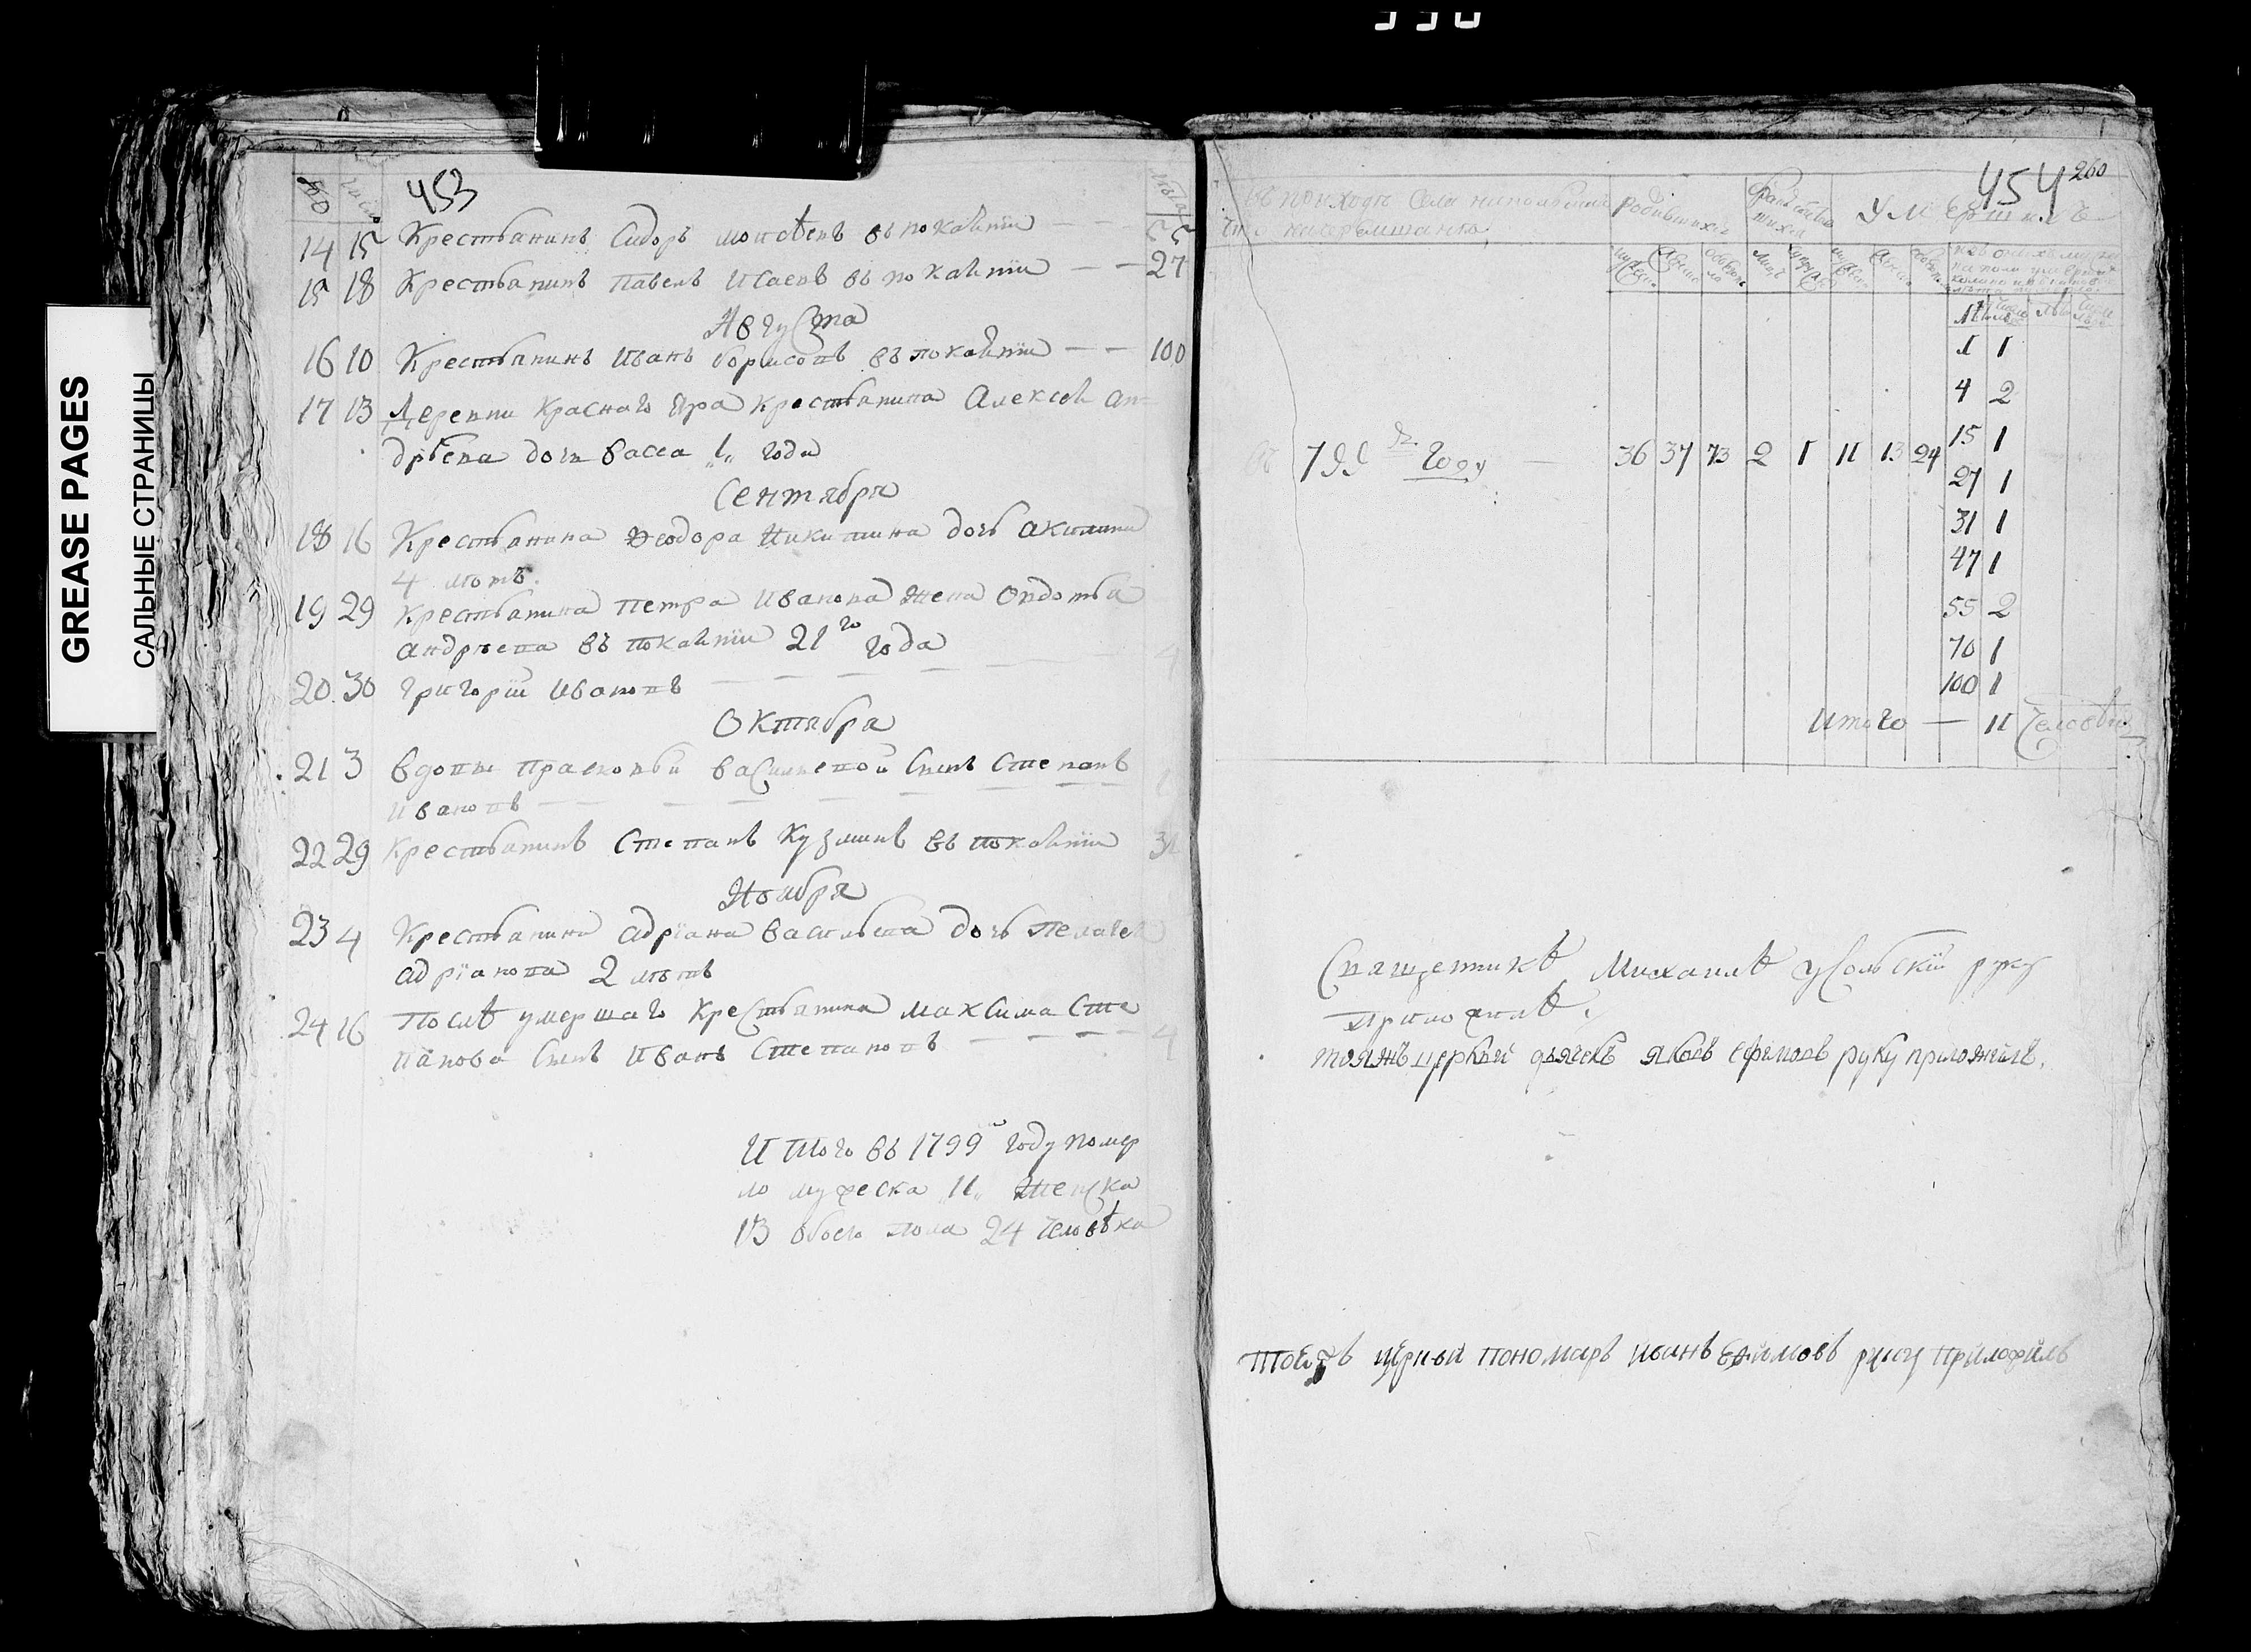 GREASE PAGES
САЛЬНЫЕ СТРАНИЦЫ
453
14 15 Крестьянинъ Сидоръ моисѣевъ въ покаянїи — — 55
15 18 Крестьянинъ Павелъ Исаевъ въ покаянїи — — 27
Августа
16 10 Крестьянинъ Иванъ борисовъ въ покаянїи — — 100
17 13 Деревни Красного Яра крестьянина Алексея ан-
дрѣева дочь васса „1„ года
Сентября
18 16 Крестьянина Ѳеодора Никитина дочь акилина
4 лѣтъ.
19 29 крестьянина петра Иванова жена Овдотья
андрѣева въ покаянїи 21го года
20. 30 григорїй Ивановъ — — — — 4
Октября
21 3 вдовы Прасковьи василиевой Сынъ Степанъ
Ивановъ — — — —
22 29 крестьянинъ Степанъ Кузминъ въ покаянїи 31
Ноября
23 4 Крестьянина адрїана васильева дочь Пелагея
адрїанова 2 лѣтъ
24 16 Послѣ умершаго Крестьянина максима Сте
панова Сынъ Иванъ Степановъ — — — 4
Итого въ 1799м году помер
ло мужеска „11„ женска
13 обоего пола 24 человѣка
454 260
въ приходѣ Села
родившихся
УМЕРШИХЪ
799м году — 36 37 73 2 1 11 13 24
1 1
4 2
15 1
27 1
31 1
47 1
55 2
70 1
100 1
Итого — 11 Человѣкъ
Священникъ Михаилъ усольскїй руку
приложилъ.
тояжъ церкви дьячекъ яковъ ефимовъ руку приложилъ.
тоежъ церкви пономарь иоанъ ефимовъ руку приложилъ